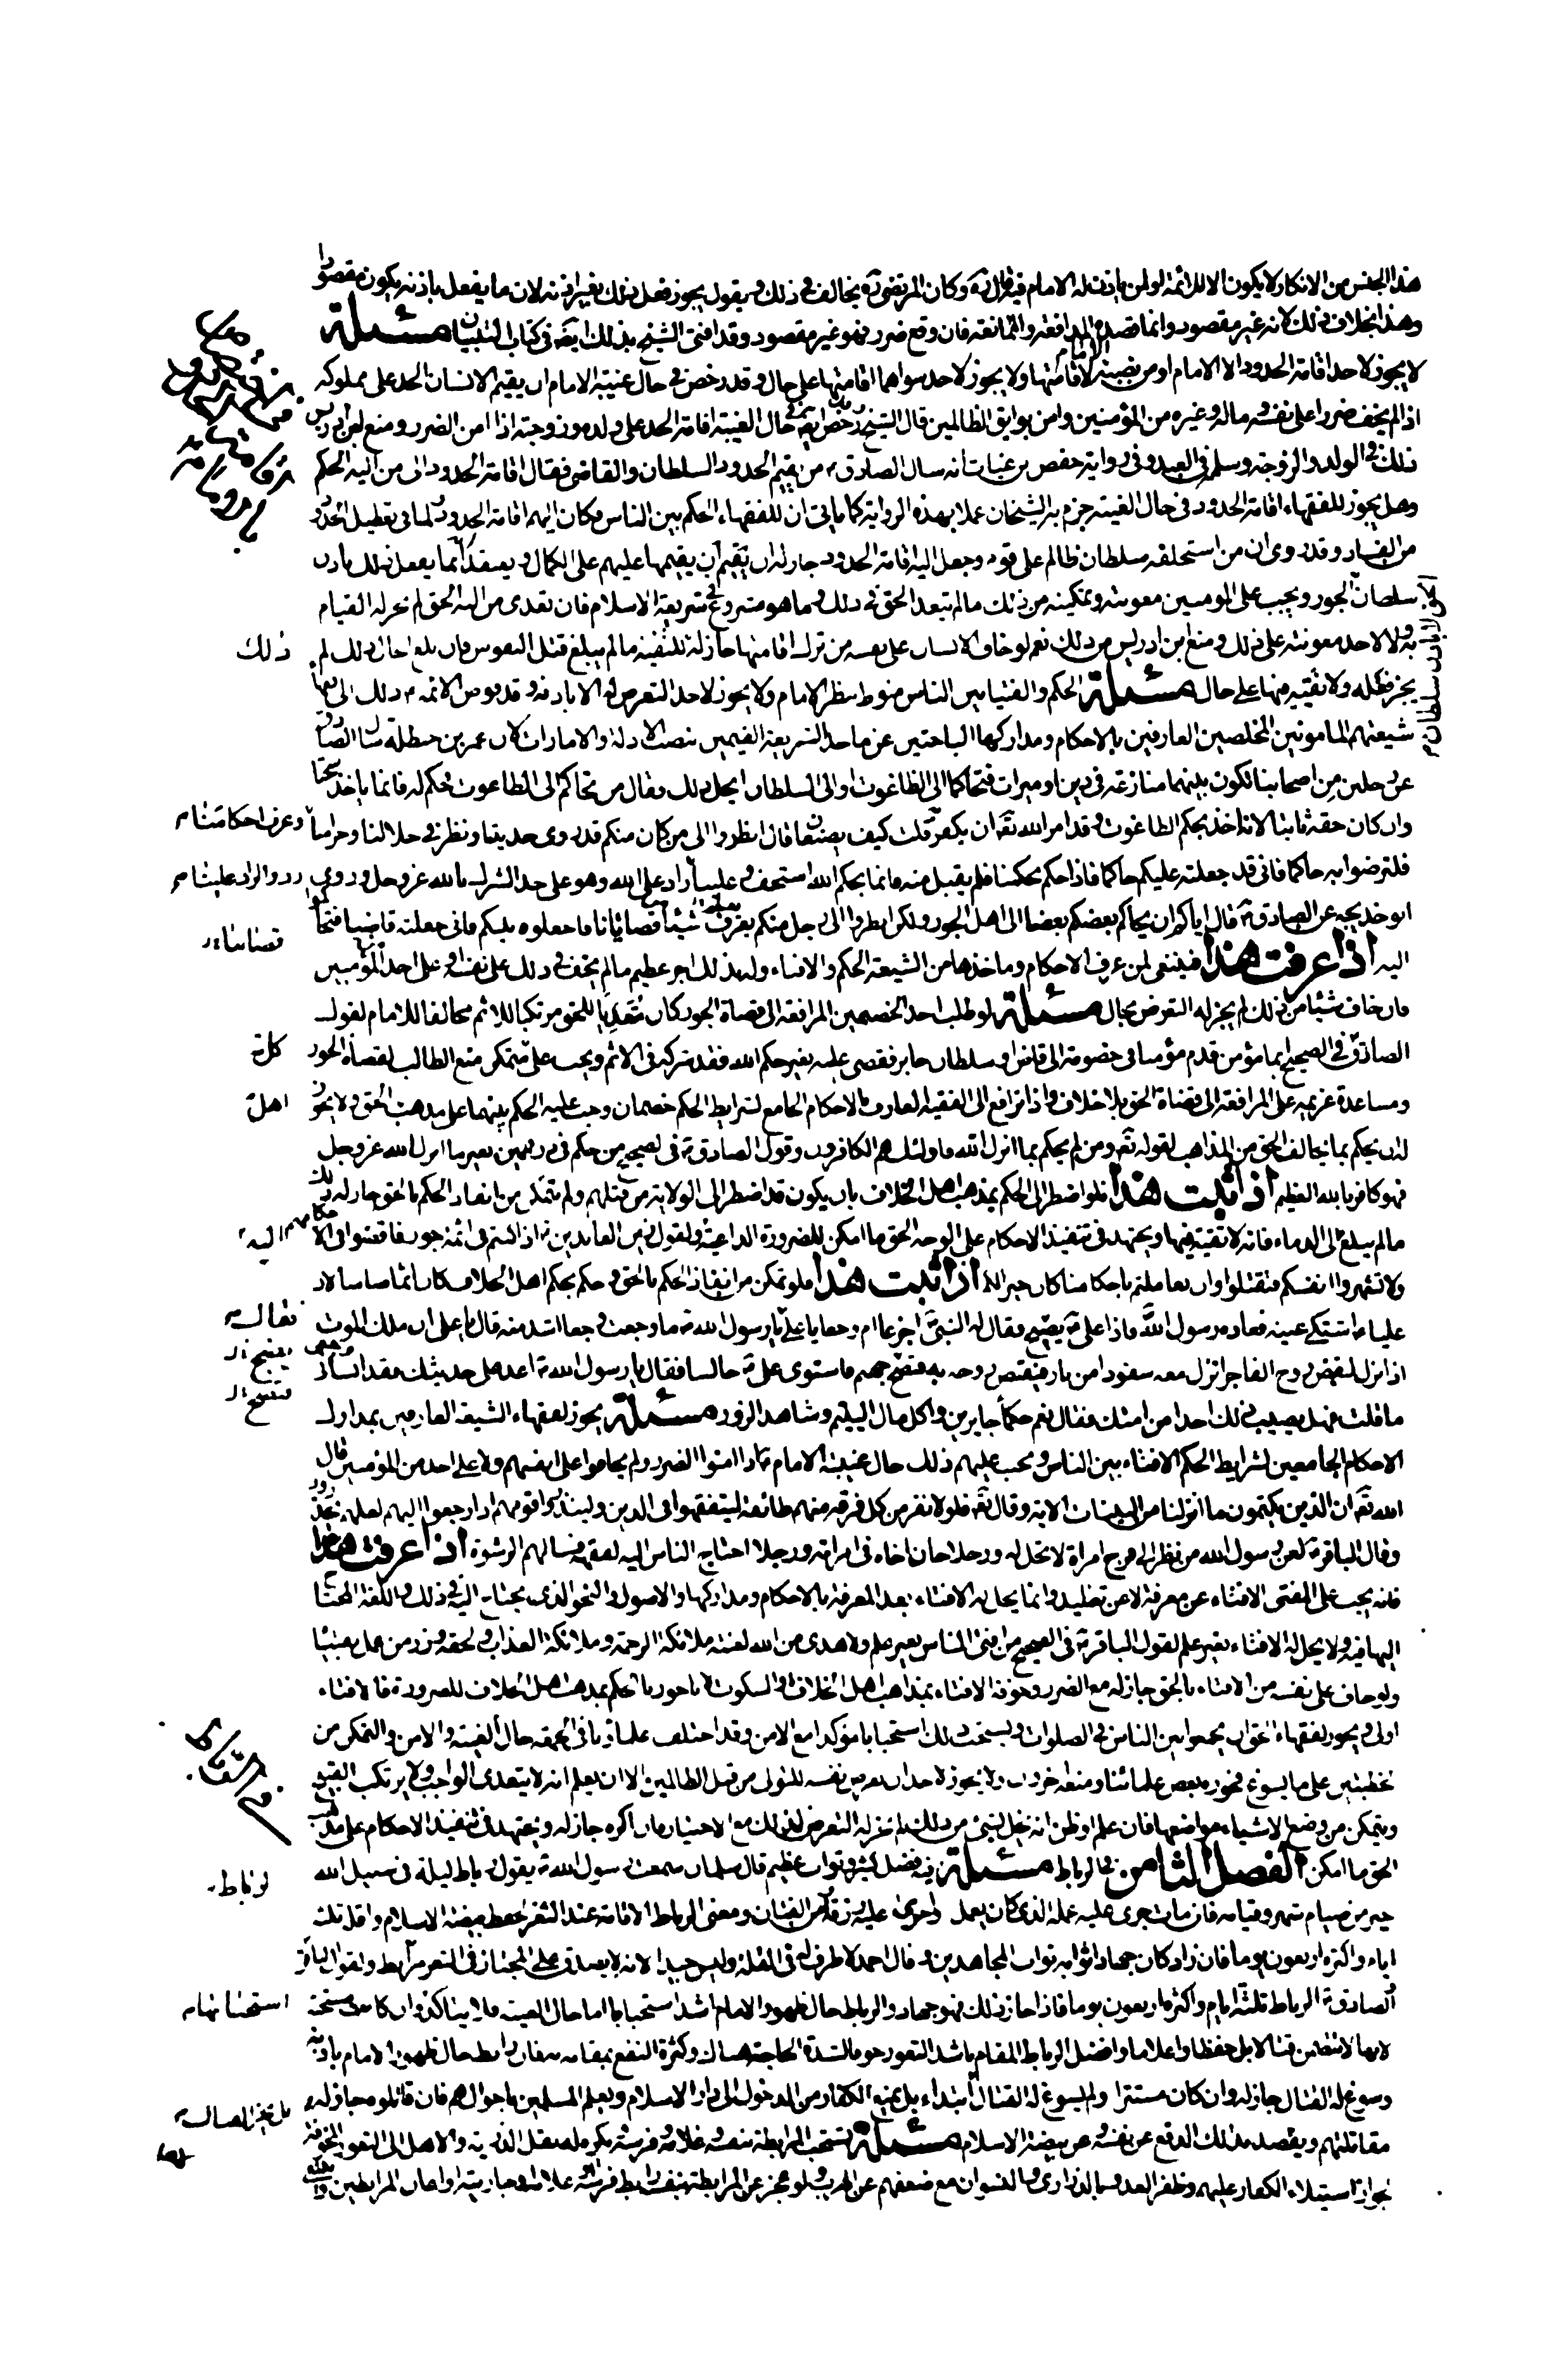 هذا الجنس من الانكار لا يكون الا للائمة او لمن ياذن له الامام فيه قال ره وكان المرتضى ره يخالف في ذلك ويقول يجوز فعل ذلك بغير اذنه لان ما يفعل باذنه يكون مقصودا
وهذا بخلاف ذلك لانه غير مقصود وانما قصده المدافعة والممانعة فان وقع ضرر فهو غير مقصود وقد افتى الشيخ بذلك ايضا في كتاب التبيان مسئلة
لا يجوز لاحد اقامة الحدود الا الامام او من نصبه الامام لاقامتها ولا يجوز لاحد سواهما اقامتها على حال وقد رخص في حال غيبة الامام ان يقيم الانسان الحد على مملوكه
اذا لم يخف ضررا على نفسه وماله وغيره من المؤمنين وامن بوايق الظالمين قال الشيخ ره وقد رخص ايضا في حال الغيبة اقامة الحد على ولده وزوجته اذا امن الضرر ومنع ابن ادريس
ذلك في الولد والزوجة وسلم في العبد وفي رواية حفص بن غياث انه سال الصادق ع من يقيم الحدود السلطان او القاضي فقال اقامة الحدود الى من اليه الحكم
وهل يجوز للفقهاء اقامة الحدود في حال الغيبة جزم به الشيخان عملا بهذه الرواية كما ياتي ان للفقهاء الحكم بين الناس فكان اليهم اقامة الحدود لما في تعطيل الحدود
من الفساد وقد روي ان من استخلفه سلطان ظالم على قوم وجعل اليه اقامة الحدود جاز له ان يقيمها عليهم على الكمال ويعتقد انه انما يفعل ذلك باذن
سلطان الحق لا باذن سلطان الجور ويجب على المومنين معونته وتمكينه من ذلك ما لم يتعد الحق في ذلك وما هو مشروع في شريعة الاسلام فان تعدى من اليه الحق لم يجز له القيام
به ولا لاحد معونته على ذلك ومنع ابن ادريس من ذلك نعم لو خاف الانسان على نفسه من ترك اقامتها جاز له ذلك للتقية ما لم يبلغ قتل النفوس فان بلغ الحال ذلك لم
يجز فعله ولا تقية فيها على حال مسئلة الحكم والفتيا بين الناس منوط بنظر الامام ولا يجوز لاحد التعرض له الا باذنه وقد فوض الائمة ع ذلك الى فقهاء
شيعتهم المامونين المخلصين العارفين بالاحكام ومداركها الباحثين عن ماخذ الشريعة القيمين بنصب الادلة والامارات لان عمر بن حنظلة سال الصادق
عن رجلين من اصحابنا يكون بينهما منازعة في دين او ميراث فتحاكما الى الطاغوت او الى السلطان ايحل ذلك فقال من تحاكم الى الطاغوت فحكم له فانما ياخذ سحتا
وان كان حقه ثابتا لانه اخذ بحكم الطاغوت وقد امر الله تع ان يكفر به قلت كيف يصنعان قال انظروا الى من كان منكم قد روى حديثنا ونظر في حلالنا وحرامنا وعرف احكامنا
فلترضوا به حاكما فاني قد جعلته عليكم حاكما فاذا حكم بحكمنا فلم يقبل منه فانما بحكم الله استخف وعلينا رد والراد علينا راد على الله وهو على حد الشرك بالله عز وجل وروى
ابو خديجة عن الصادق ع قال اياكم ان يحاكم بعضكم بعضا الى اهل الجور ولكن انظروا الى رجل منكم يعرف شيئا من قضايانا فاجعلوه بينكم فاني جعلته قاضيا فتحاكموا
اليه اذا عرفت هذا فينبغي لمن عرف الاحكام وماخذها من الشيعة الحكم والافتاء وله بذلك اجر عظيم ما لم يخف في ذلك على نفسه او على احد المؤمنين
فان خاف شيئا من ذلك لم يجز له التعرض بحال مسئلة لو طلب احد الخصمين المرافعة الى قضاة الجور كان متعديا للحق مرتكبا للاثم مخالفا للامام لقول
الصادق ع في الصحيح ايما مؤمن قدم مؤمنا في خصومة الى قاض او سلطان جاير فقضى عليه بغير حكم الله فقد شركه في الاثم ويجب على كل متمكن منع الطالب لقضاة الجور
ومساعدة غريمه على المرافعة الى قضاة الحق بلا خلاف واذا ترافع الى الفقيه العارف بالاحكام الجامع لشرايط الحكم خصمان وجب عليه الحكم بينهما على مذهب اهل الحق ولا يجوز
له ان يحكم بما يخالف الحق من المذاهب لقوله تع ومن لم يحكم بما انزل الله فاولئك هم الكافرون وقول الصادق ع في الصحيح من حكم في درهمين بغير ما انزل الله عز وجل
فهو كافر بالله العظيم اذا ثبت هذا فلو اضطر الى الحكم بمذهب اهل الخلاف بان يكون قد اضطر الى الولاية من قبلهم ولم يتمكن من انفاذ الحكم بالحق جاز له ذلك
ما لم يبلغ الى الدماء فانه لا تقية فيها ويجتهد في تنفيذ الاحكام على الوجه الحق ما امكن للضرورة الداعية اليه ولقول زين العابدين ع اذا كنتم في ائمة جور فاقضوا في احكامهم
ولا تشهروا انفسكم فتقتلوا وان تعاملتم باحكامنا كان خيرا لكم اذا ثبت هذا فلو تمكن من انفاذ الحكم بالحق وحكم بحكم اهل الخلاف كان اثما ضامنا لان
عليا ع اشتكى عينه فعاده رسول الله ص فاذا علي ع يصيح فقال له النبي ص اجزعا ام وجعا يا علي فقال يا رسول الله ما وجعت وجعا اشد منه قال يا علي ان ملك الموت
اذا نزل ليقبض روح الفاجر انزل معه سفودا من نار فيقبض روحه به فتضج جهنم فاستوى علي ع جالسا فقال يا رسول الله اعد علي حديثك فقد انساني وجعي
ما قلت فهل يصيب ذلك احدا من امتك فقال نعم حكاما جايرين واكل مال اليتيم وشاهد الزور مسئلة يجوز لفقهاء الشيعة العارفين بمدارك
الاحكام الجامعين لشرايط الحكم الافتاء بين الناس ويجب عليهم ذلك حال غيبة الامام ع اذا امنوا الضرر ولم يخافوا على انفسهم ولا على احد من المؤمنين قال
الله تع ان الذين يكتمون ما انزلنا من البينات الاية وقال تع فلولا نفر من كل فرقة منهم طائفة ليتفقهوا في الدين ولينذروا قومهم اذا رجعوا اليهم لعلهم يحذرون
وقال الباقر ع لعن رسول الله من نظر الى فرج امراة لا تحل له ورجلا خان اخاه في امراته ورجلا احتاج الناس اليه لفقهه فسالهم الرشوة اذا عرفت هذا
فانه يجب على المفتي الافتاء عن معرفة لا عن تقليد وانما يحل له الافتاء بعد المعرفة بالاحكام ومداركها والاصول والنحو الذي يحتاج اليه في ذلك واللغة المحتاج
اليها فيه ولا يحل له الافتاء بغير علم لقول الباقر ع في الصحيح من افتى الناس بغير علم ولا هدى من الله لعنته ملائكة الرحمة وملائكة العذاب ولحقه وزر من عمل بفتياه
ولو خاف على نفسه من الافتاء بالحق جاز له مع الضرر وخوفه الافتاء بمذاهب اهل الخلاف او السكوت لانا جوزنا الحكم بمذهب اهل الخلاف للضرورة فالافتاء
اولى ويجوز لفقهاء الحق ان يجمعوا بين الناس في الصلوات ويستحب ذلك استحبابا مؤكدا مع الامن وقد اختلف علماؤنا في الجمعة حال الغيبة والامن والتمكن من
الخطبتين على ما يسوغ فجوزه بعض علمائنا ومنعه اخرون ولا يجوز لاحد ان يعرض نفسه للتولي من قبل الظالمين الا ان يعلم انه لا يتعدى الواجب ولا يرتكب القبيح
ويتمكن من وضع الاشياء مواضعها فان علم او ظن انه يخل بشيء من ذلك لم يجز له التعرض لذلك مع الاختيار فان اكره جاز له ويجتهد في تنفيذ الاحكام على مذهب
الحق ما امكن الفصل الثامن في الرباط مسئلة الرباط فيه فضل كثير وثواب عظيم قال سلمان سمعت رسول الله ص يقول رباط ليلة في سبيل الله
خير من صيام شهر وقيامه فان مات جرى عليه عمله الذي كان يعمل واجري عليه رزقه وامن الفتان ومعنى الرباط الاقامة عند الثغر لحفظ بيضة الاسلام واقله ثلثة
ايام واكثره اربعون يوما فان زاد كان جهادا ثوابه ثواب المجاهدين وقال احمد لا طرف له في القلة وليس جيدا لانه لا يصدق على المجتاز في الثغر مرابط ولقول الباقر
والصادق ع الرباط ثلثة ايام واكثره اربعون يوما فاذا جاز ذلك فهو جهاد والرباط حال ظهور الامام اشد استحبابا اما حال الغيبة فلا يتاكد استحبابها وان كانت مستحبة
لانها لا تتضمن قتالا بل حفظا واعلاما وافضل الرباط المقام باشد الثغور خوفا لشدة الحاجة هناك وكثرة النفع بمقامه فان رابط حال ظهور الامام باذنه
وسوغ له القتال جاز له وان كان مستترا ولم يسوغ له القتال ابتداء بل يمنع الكفار من الدخول الى دار الاسلام ويعلم المسلمين باحوالهم فان قاتلوه جاز له
مقاتلتهم ويقصد بذلك الدفع عن نفسه وعن بيضة الاسلام مسئلة تستحب المرابطة بنفسه وغلامه وفرسه ويكره له نقل الذرية والاهل الى الثغور المخوفة
لجواز استيلاء الكفار عليهم وظفر العدو بالذراري والنسوان مع ضعفهم عن الهرب ولو عجز عن المرابطة بنفسه رابط فرسه او غلامه او جاريته او اعان المرابطين